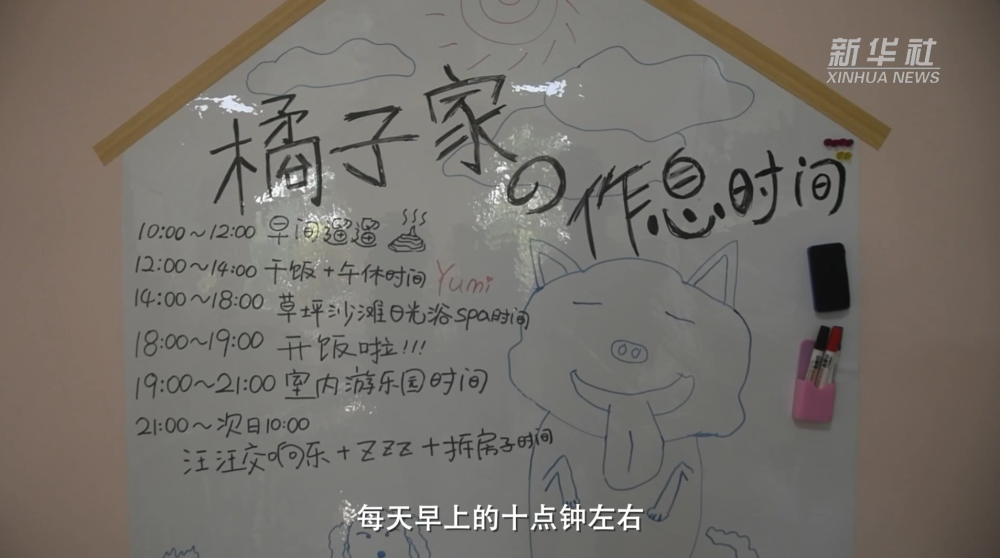 新华社
XINHUA NEWS
橘子家の作息时间
10:00~12:00 早间遛遛
12:00~14:00 干饭+午休时间 Yumi
14:00~18:00 草坪沙滩日光浴spa时间
18:00~19:00 开饭啦!!!
19:00~21:00 室内游乐园时间
21:00~次日10:00
汪汪交响乐+ZZZ+拆房子时间
每天早上的十点钟左右